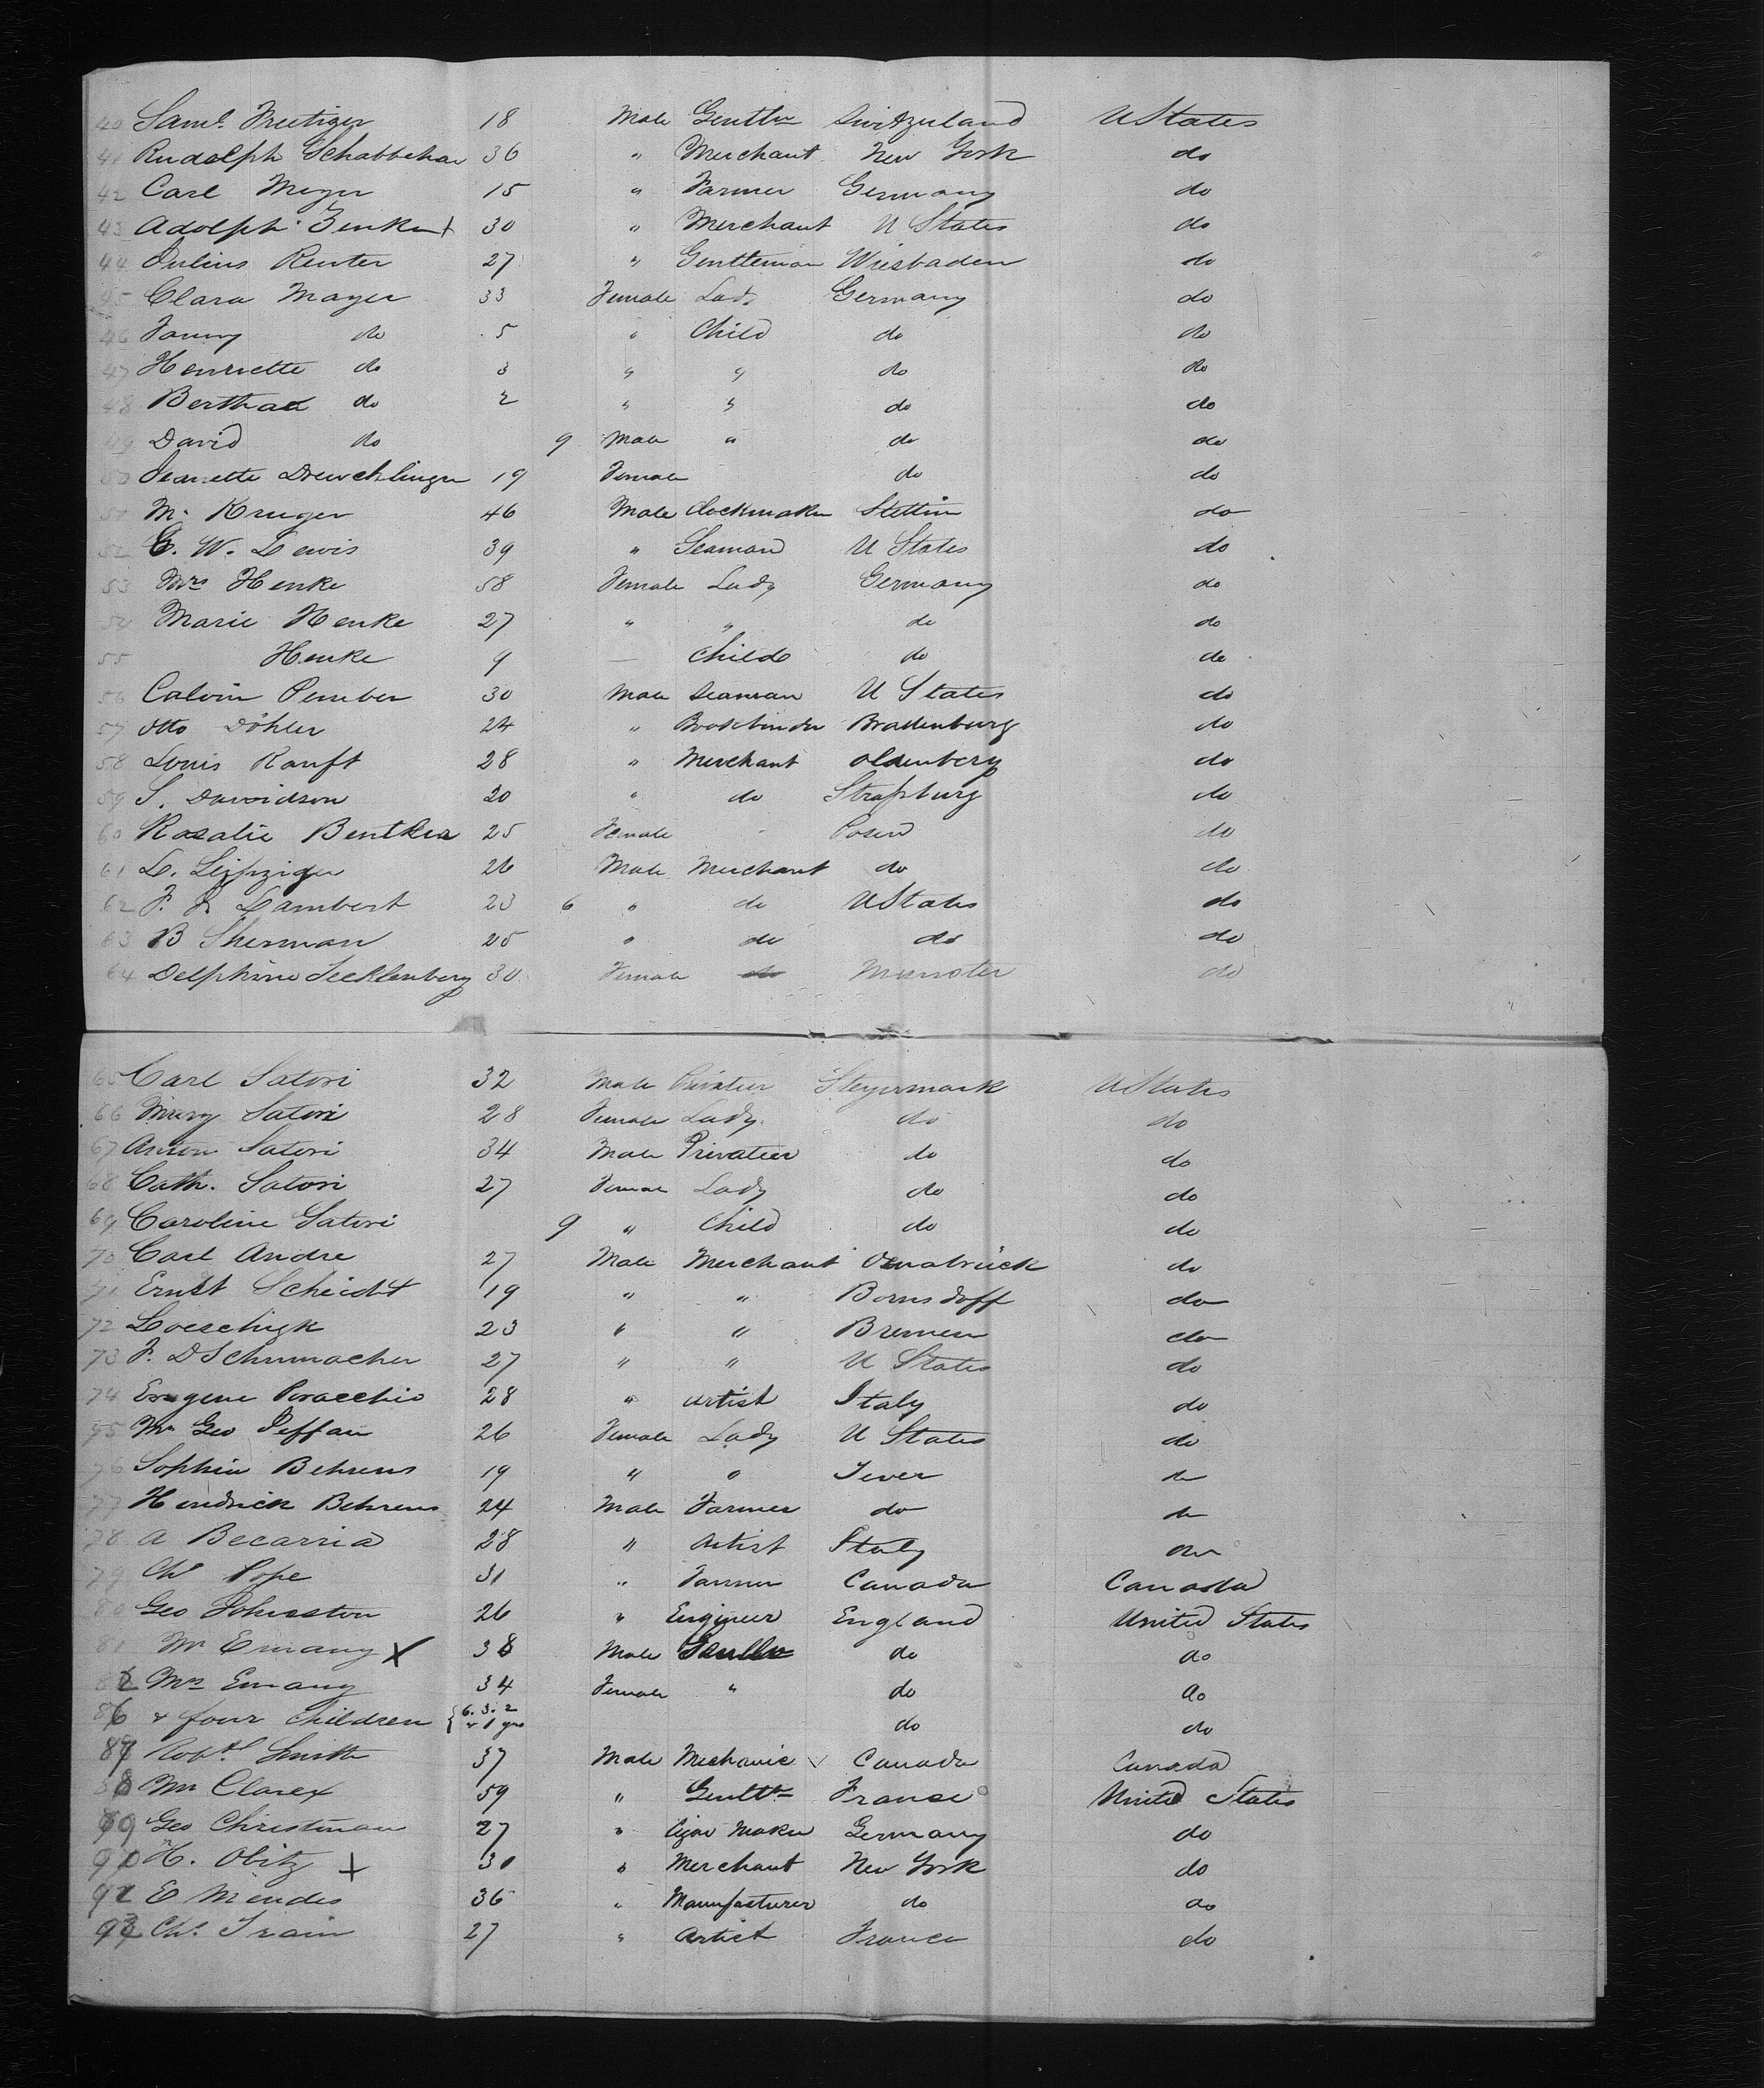 40 Saml. Frutiger 18 Male Gentln Switzerland UStates
41 Rudolph Schabbehar 36 " Merchant New York do
42 Carl Meyer 15 " Farmer Germany do
43 Adolph Zenker + 30 " Merchant U States do
44 Julius Reuter 27 " Gentleman Wiesbaden do
45 Clara Mayer 33 Female Lady Germany do
46 Fanny do 5 " Child do do
47 Henriette do 3 " " do do
48 Bertha do 2 " " do do
49 David do 9 Male " do do
50 Jeanette 19 Female do do
51 M. Kruger 46 Male Clockmaker Stettin do
52 C. W. Lewis 39 " Seaman U States do
53 Mrs Henke 58 Female Lady Germany do
54 Marie Henke 27 " " do do
55 Henke 9 — Child do do
56 Calvin Pember 30 Male Seaman U States do
57 Otto Döhler 24 " Bookbinder Bradenburg do
58 Louis Ranft 28 " Merchant Oldenberg do
59 S. Davidson 20 " do Strassburg do
60 Rosalie Bentker 25 Female Posen do
61 L. Leipziger 26 Male Merchant do do
62 F. Lambert 23 6 " do UStates do
63 B Sherman 25 " do do do
64 Delphine Tecklenberg 30 Female do Munster do
65 Carl Satori 32 Male Privatier Steyermark UStates
66 Mary Satori 28 Female Lady do do
67 Anton Satori 34 Male Privatier do do
68 Cath. Satori 27 Female Lady do do
69 Caroline Satori 9 " Child do do
70 Carl Andre 27 Male Merchant Osnabrück do
71 Ernst Scheidt 19 " " Bornsdoff do
72 Loeschigk 23 " " Bremen do
73 F. D Schumacher 27 " " U States do
74 Eugene Peracchio 28 " Artist Italy do
75 Geo 26 Female Lady U States do
76 Sophia Behrens 19 " " Jever do
77 Hendrick Behrens 24 Male Farmer do do
78 A Becarria 28 " Artist Italy do
79 Chs Pope 31 " Farmer Canada Canada
80 Geo Johnston 26 " Engineer England United States
81 Mr Emany X 38 Male do do
82 Mrs Emany 34 Female " do do
86 & four children { 6. 3. 2 & 1 yrs do do
87 Robt Smith 37 Male Mechanic Canada Canada
88 Mr Clarex 59 " Gentln France United States
89 Geo Christman 27 " Cigar Maker Germany do
90 H. Obitz + 30 " Merchant New York do
91 E Mendes 36 " Manufacturer do do
92 Chs. Train 27 " Artist France do